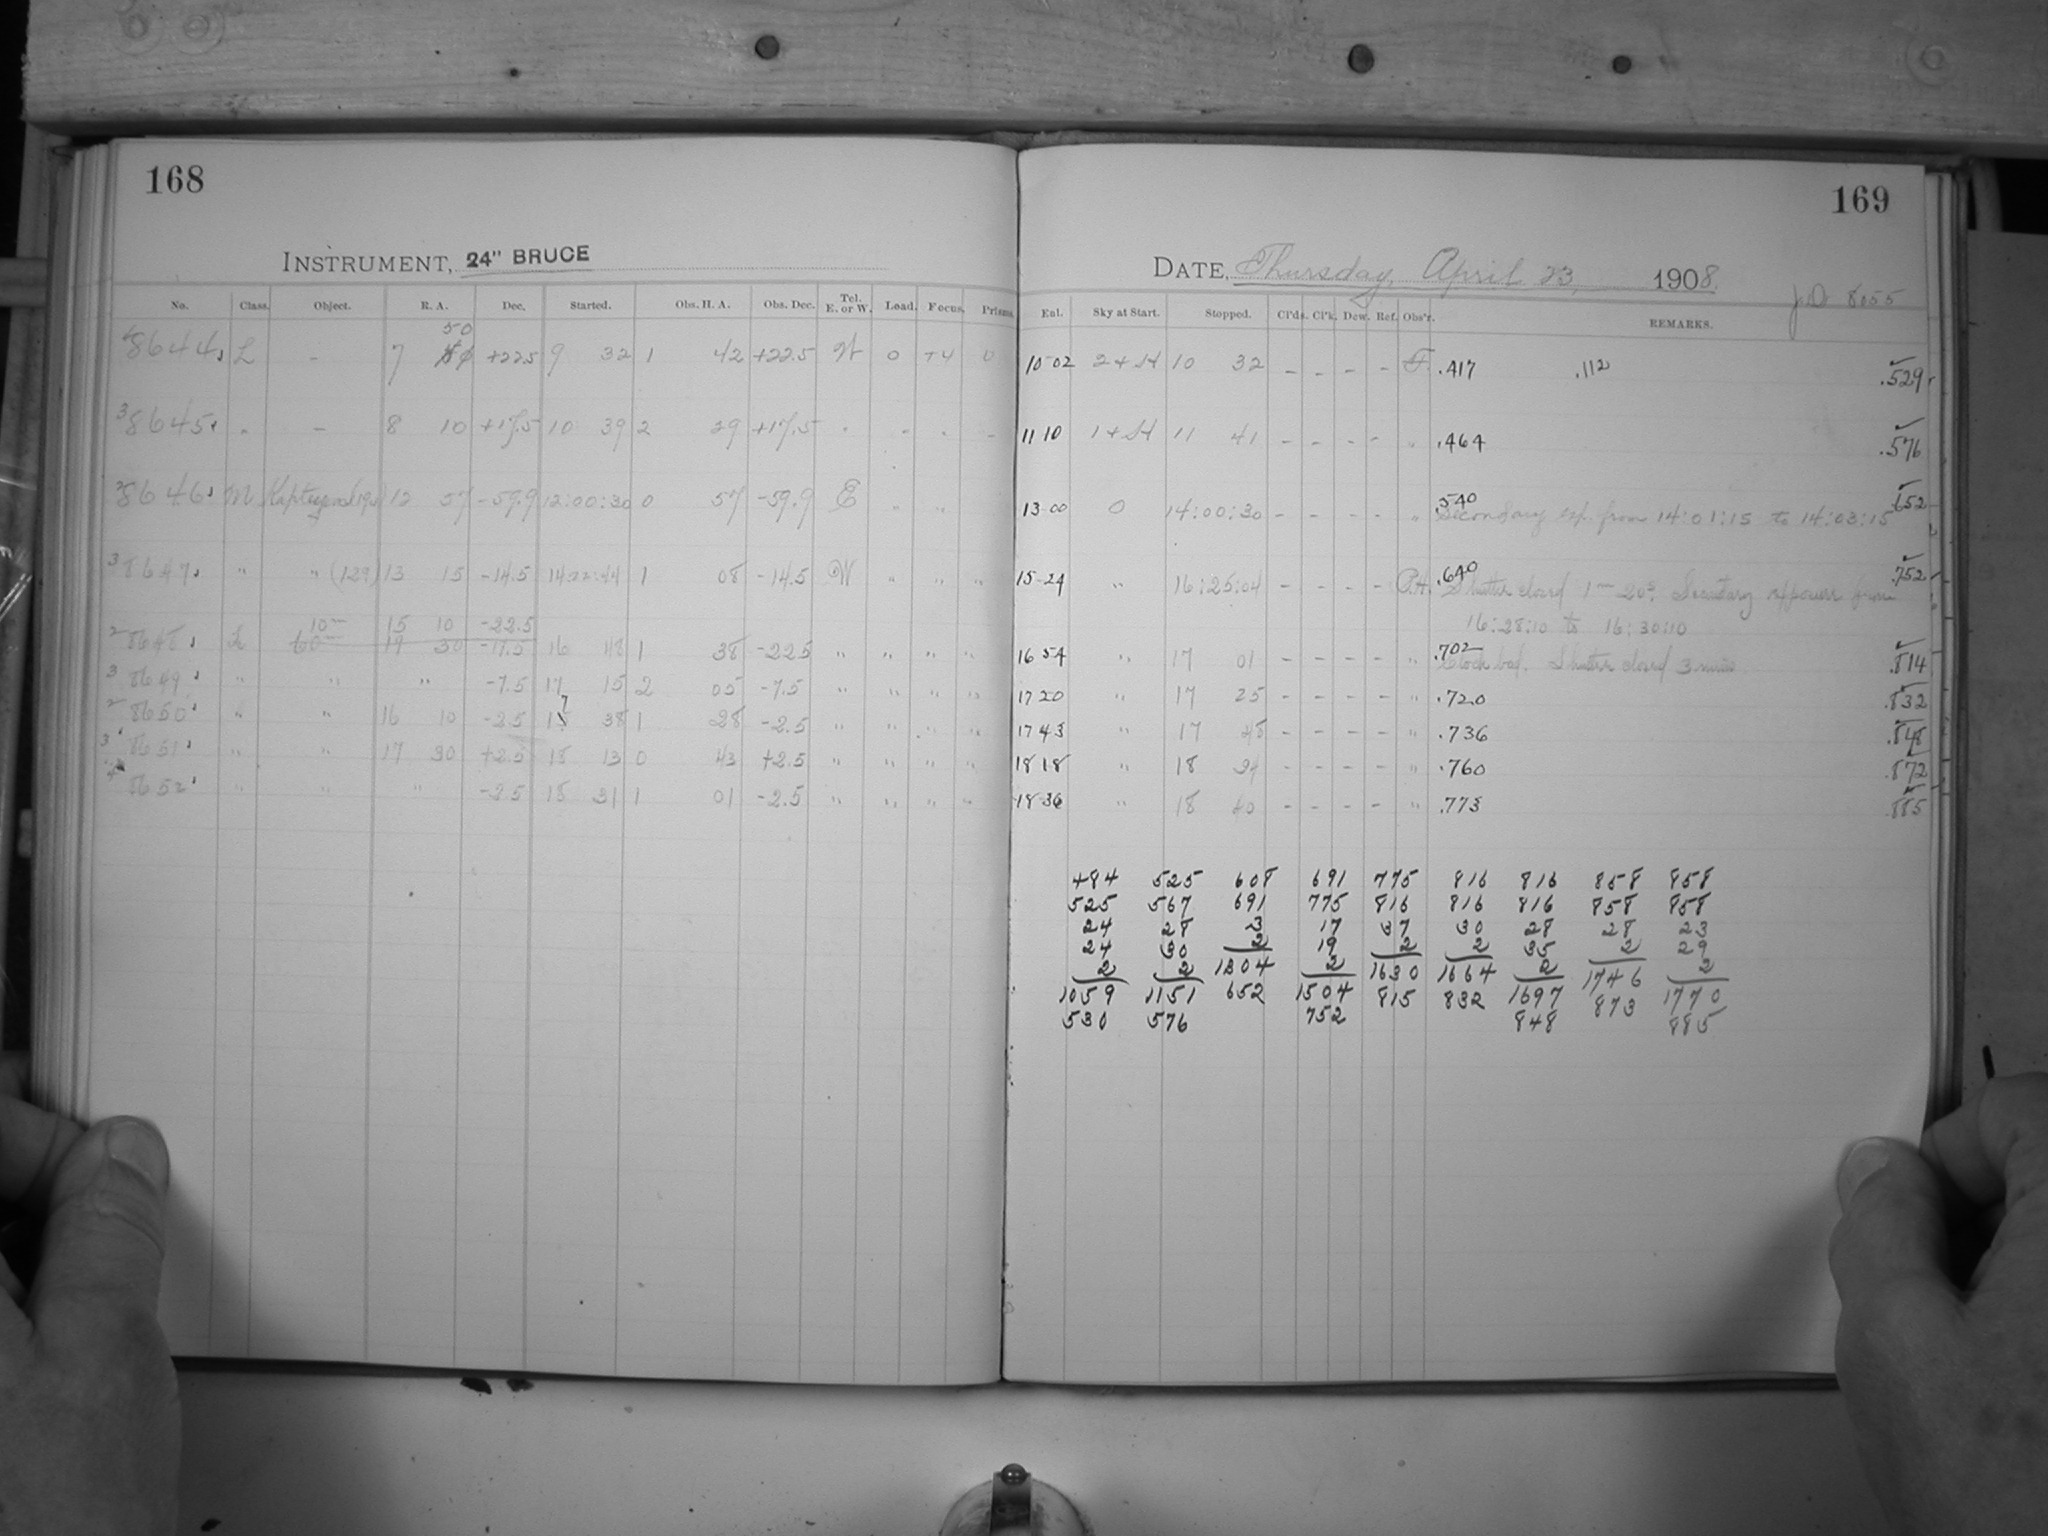 168
INSTRUMENT, 24" BRUCE
No. Class. Object. R. A. Dec. Started. Obs. H. A. Obs. Dec. Tel. E. or W. Load. Focus. Prisms.
50
8644 L - 7 +22.5 9 32 1 42 +22.5 W 0 +4 0
3 8645 " - 8 10 +17.5 10 39 2 29 +17.5 " " " "
2 8646 M 12 57 -59.9 12:00:30 0 57 -59.9 E " "
3 8647 " " (129) 13 15 -14.5 14:22:44 1 08 -14.5 W " " "
10m 15 10 -22.5
2 8648 L 60m 19 30 -17.5 16 48 1 38 -22.5 " " " "
3 8649 " " " -7.5 17 15 2 05 -7.5 " " " "
2 8650 " " 16 10 -2.5 17 38 1 28 -2.5 " " " "
3 8651 " " 17 30 +2.5 18 13 0 43 +2.5 " " " "
4 8652 " " " -2.5 18 31 1 01 -2.5 " " " "
169
DATE, Thursday, April 23, 1908.
J.D. 8055
Enl. Sky at Start. Stopped. Cl'ds. Cl'k. Dew. Ref. Obs'r. REMARKS.
10-02 2+H 10 32 - - - - F. .417 .112 .529
11 10 1+H 11 41 - - - - " .464 .576
13-00 0 14:00:30 - - - - " .540 .652
Secondary exp. from 14:01:15 to 14:03:15
15-24 " 16:25:04 - - - - P.H. .640 .752
Shutter closed 1m 20s. Secondary exposure from
16:28:10 to 16:30:10
16 54 " 17 01 - - - - " .702 .814
Clock bad. Shutter closed 3 mins
17 20 " 17 25 - - - - " .720 .832
17 43 " 17 48 - - - - " .736 .848
18 18 " 18 24 - - - - " .760 .872
18-36 " 18 40 - - - - " .773 .885
484 525 608 691 775 816 816 858 858
525 567 691 775 816 816 816 858 858
24 28 3 17 37 30 28 28 23
24 30 2 19 2 2 35 2 29
2 2 1304 2 1630 1664 2 1746 2
1059 1151 652 1504 815 832 1697 873 1770
530 576 752 848 885